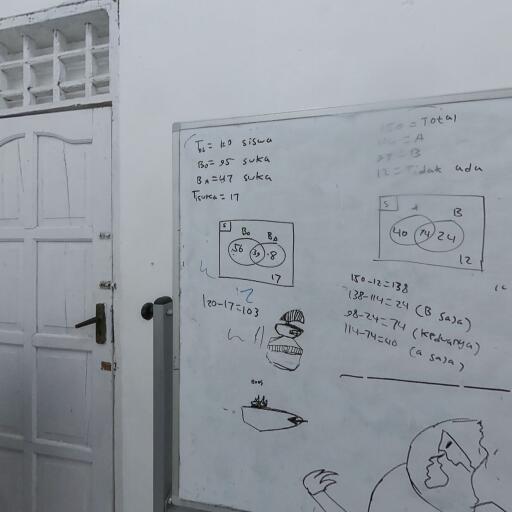 siswa
Bo = 95 suka
BA = 47 suka
Tsuka = 17
S
Bo BA
56 39 8
17
120-17=103
150 = Total
= A
= B
12 = Tidak ada
S
A B
40 74 24
12
150-12=138
138-114=24 (B saja)
98-24=74 (keduanya)
114-74=40 (a saja)